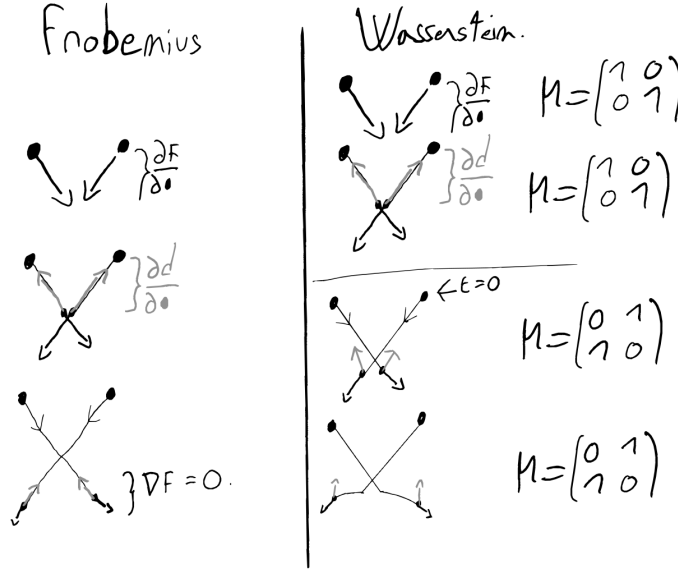 Frobenius
∂F
∂•
∂d
∂•
} ∇F = 0.
Wasserstein.
∂F
∂•
M = (1 0
0 1)
∂d
∂•
M = (1 0
0 1)
← t=0
M = (0 1
1 0)
M = (0 1
1 0)